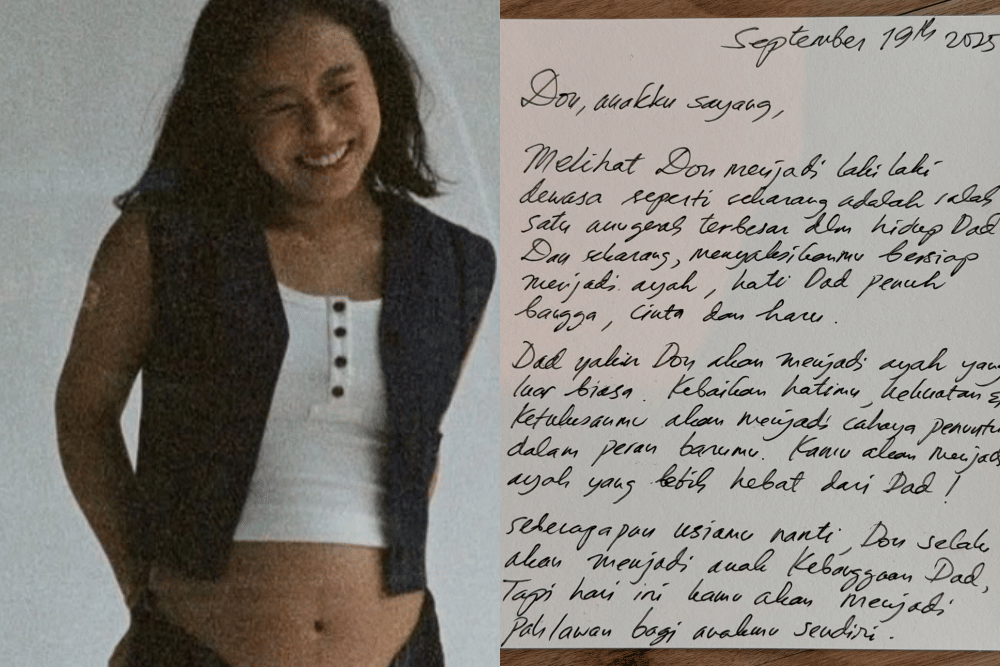 September 19th 2025
Don, anakku sayang,
Melihat Don menjadi laki laki
dewasa seperti sekarang adalah salah
satu anugerah terbesar dlm hidup Dad
Dan sekarang, menyaksikanmu bersiap
menjadi ayah, hati Dad penuh
bangga, cinta dan haru.
Dad yakin Don akan menjadi ayah yang
luar biasa. Kebaikan hatimu, kekuatan &
Ketulusanmu akan menjadi cahaya penuntu
dalam peran barumu. Kamu akan menjad
ayah yang lebih hebat dari Dad!
seberapapun usiamu nanti, Don selalu
akan menjadi anak Kebanggaan Dad,
Tapi hari ini kamu akan menjadi
Pahlawan bagi anakmu sendiri.